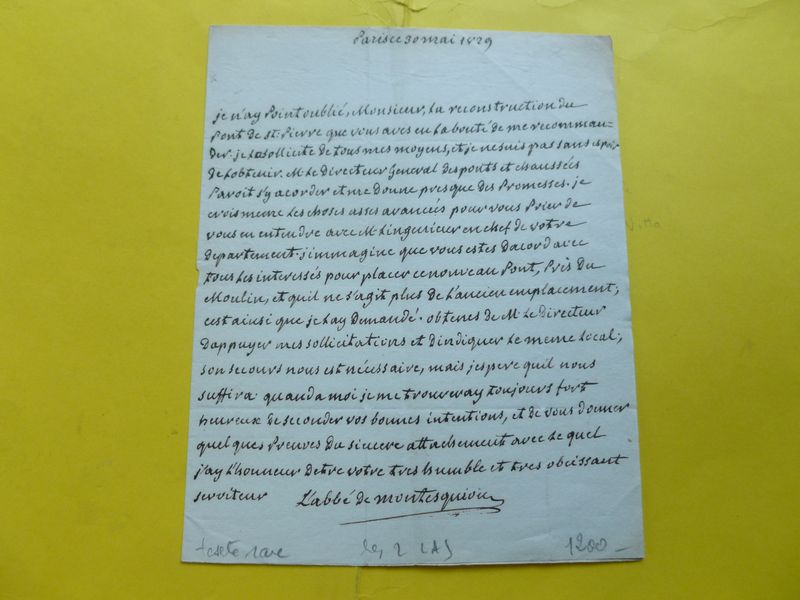 Paris ce 30 mai 1829
je n'ay Point oublié, Monsieur, La reconstruction du
Pont de st. Pierre que vous avès eu La bonté de me recomman-
der. je La sollicite de tous mes moyens, et je ne suis pas sans espoir
de L'obtenir. M. Le Directeur General des ponts et chaussées
Paroit s'y acorder et me Donne presque des Promesses. je
crois meme Les choses asses avancées pour vous Prier de
vous en entendre avec M. Lingenieur en chef de votre
Departement. j'immagine que vous estes D'acord avec
tous Les interessés pour placer ce nouveau Pont, Près Du
Moulin, et quil ne s'agit plus de L'ancien emplacement;
cest ainsi que je L'ay Demandé. obtenes de M. Le Directeur
D'appuyer mes sollicitations et D'indiquer Le meme Local;
son secours nous est nécessaire, mais j'espere quil nous
suffira. quand a moi je me trouveray toujours fort
heureux De seconder vos bonnes intentions, et de vous donner
quelques Preuves Du sincere attachement avec Le quel
j'ay L'honneur Detre votre tres humble et tres obeissant
serviteur L'abbé de montesquiou
rare
les 2 LAS
1200 –